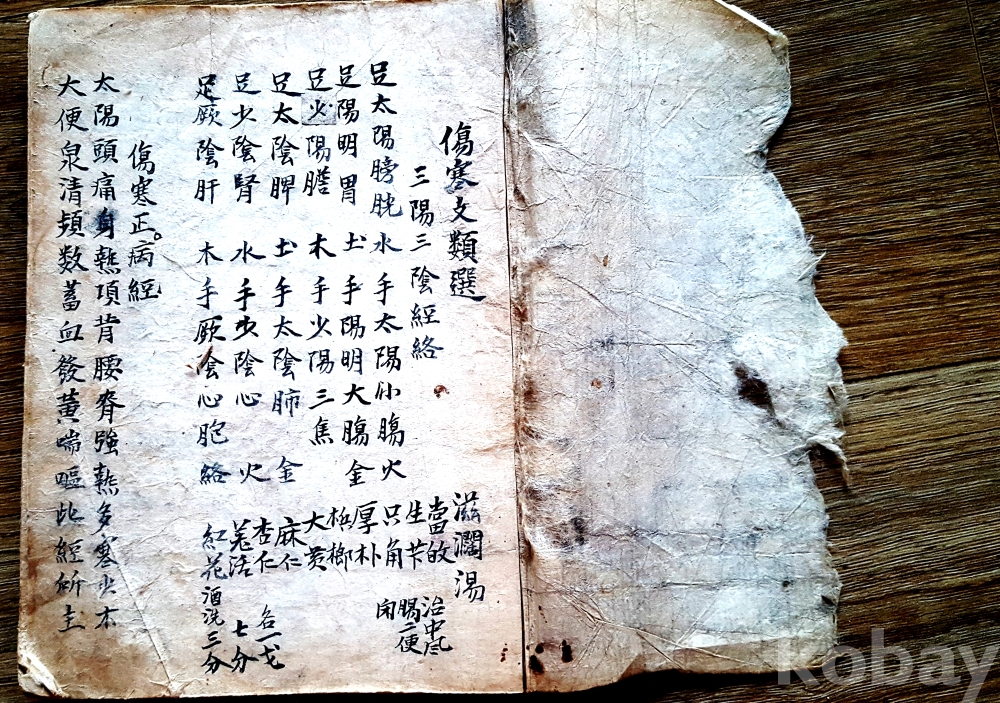 傷寒文類選
三陽三陰經絡
足太陽膀胱 水 手太陽小腸 火
足陽明胃 土 手陽明大腸 金
足少陽膽 木 手少陽三焦
足太陰脾 土 手太陰肺 金
足少陰腎 水 手少陰心 火
足厥陰肝 木 手厥陰心胞絡
滋潤湯
治中風
當的
腸二便
生芐
閉
只角
厚朴
梹榔
大黄
麻仁
杏仁 各一戔
羗活 七分
紅花 酒洗三分
傷寒正病經
太陽頭痛身熱項背腰脊強熱多寒少木
大便泉清頻数蓄血發黃喘嘔此經所主
kobay